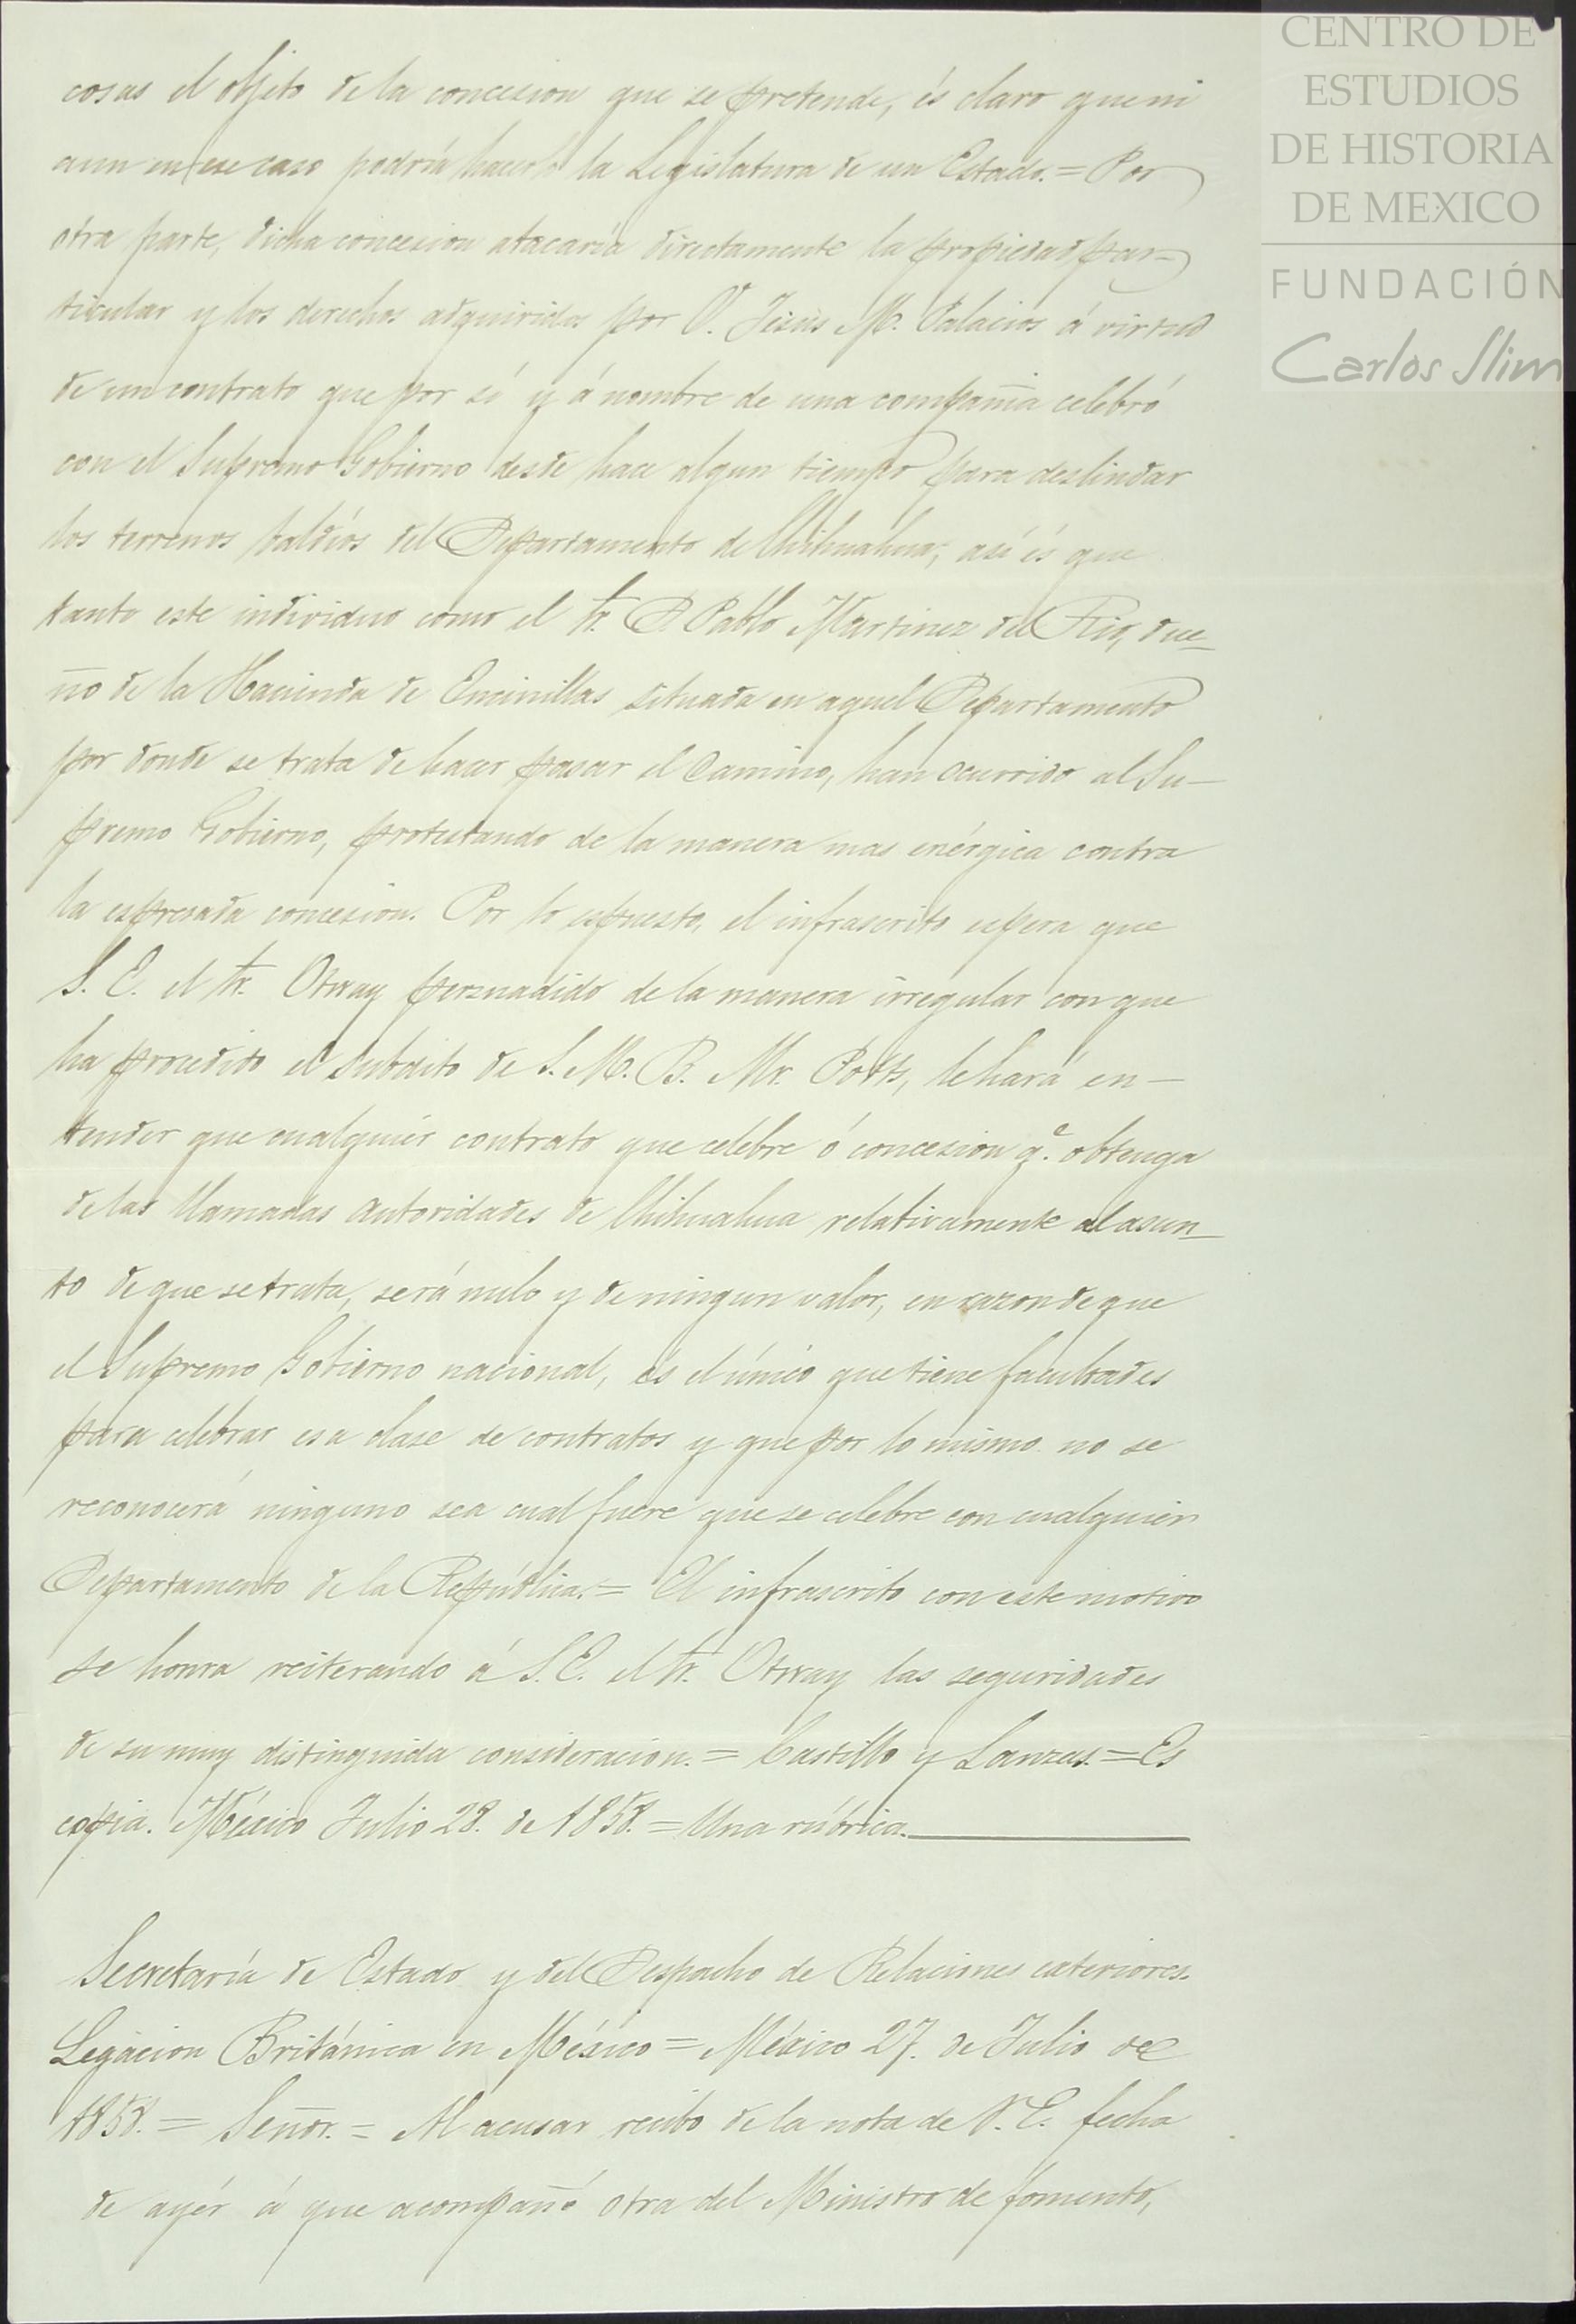 CENTRO DE
ESTUDIOS
DE HISTORIA
DE MEXICO
FUNDACIÓN
Carlos Slim
cosas el objeto de la concesion que se pretende, és claro que ni
aun en ese caso podría hacerlo la Legislatura de un Estado.= Por
otra parte, dicha concesion atacaría directamente la propiedad par-
ticular y los derechos adquiridos por D. Jesús M. Palacios á virtud
de un contrato que por sí y á nombre de una compañia celebró
con el Supremo Gobierno desde hace algun tiempo para deslindar
los terrenos baldíos del Departamento de Chihuahua; así és que
tanto este individuo como el Sr. D. Pablo Martinez del Rio, due-
ño de la Hacienda de Encinillas situada en aquel Departamento
por donde se trata de hacer pasar el Camino, han ocurrido al Su-
premo Gobierno, protestando de la manera mas enérgica contra
la espresada concesion. Por lo espuesto, el infrascrito espera que
S. E. el Sr. Otway persuadido de la manera irregular con que
ha procedido el subdito de S. M. B. Mr. Potts, le hará en-
tender que cualquiér contrato que celebre ó concesion q.e obtenga
de las llamadas autoridades de Chihuahua relativamente al asun-
to de que se trata, será nulo y de ningun valor, en razon de que
el Supremo Gobierno nacional, és el único que tiene facultades
para celebrar esa clase de contratos y que por lo mismo no se
reconocerá ninguno sea cual fuere que se celebre con cualquier
Departamento de la República.= El infrascrito con este motivo
se honra reiterando á S. E. el Sr. Otway las seguridades
de su muy distinguida consideracion.= Castillo y Lanzas.= Es
copia. México Julio 28. de 1858.= Una rúbrica.
Secretaría de Estado y del Despacho de Relaciones exteriores.
Legacion Británica en México = México 27. de Julio de
1858.= Señor.= Al acusar recibo de la nota de V. E. fecha
de ayér á que acompañó otra del Ministro de fomento,